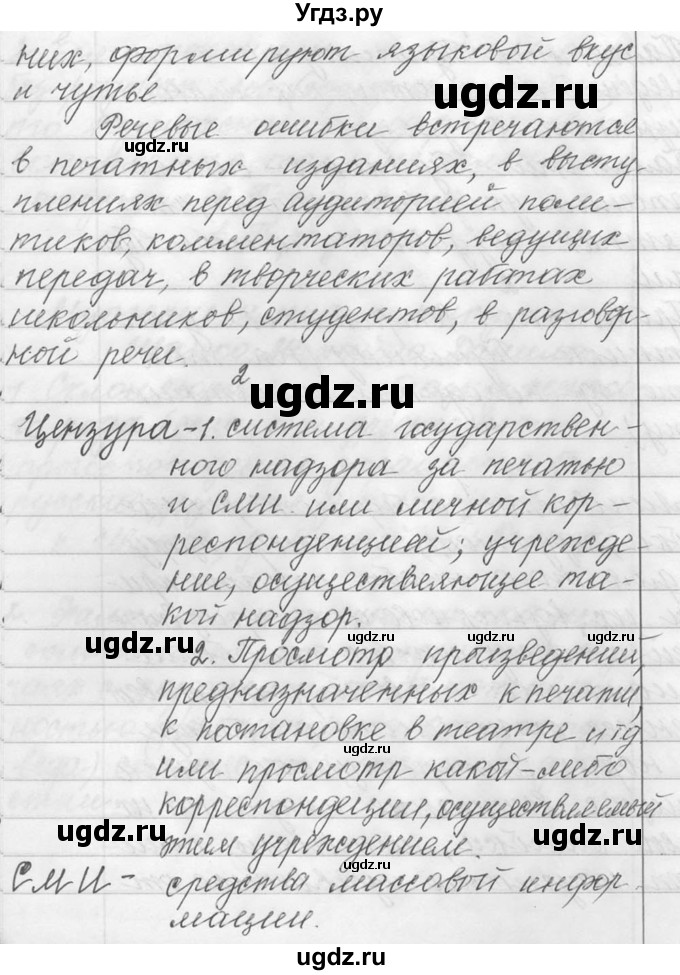 Угдз.ру
них, формируют языковой вкус
и чутье
ugdz.ru
Речевые ошибки встречаются
в печатных изданиях, в высту-
плениях перед аудиторией поли-
тиков, комментаторов, ведущих
передач, в творческих работах
школьников, студентов, в разговор-
ной речи.
2
ugdz.ru
Цензура - 1. система государствен-
ного надзора за печатью
и СМИ или личной кор-
респонденцией; учрежде-
ние, осуществляющее та-
кой надзор.
ugdz.ru ugdz.ru ugdz.ru
2. Просмотр произведений,
предназначенных к печати,
к постановке в театре итд
ugdz.ru
или просмотр какой-либо
корреспонденции, осуществляемый
ugdz.ru ugdz.ru
этим учреждением.
ugdz.ru
СМИ - средства массовой инфор-
мации.
ugdz.ru